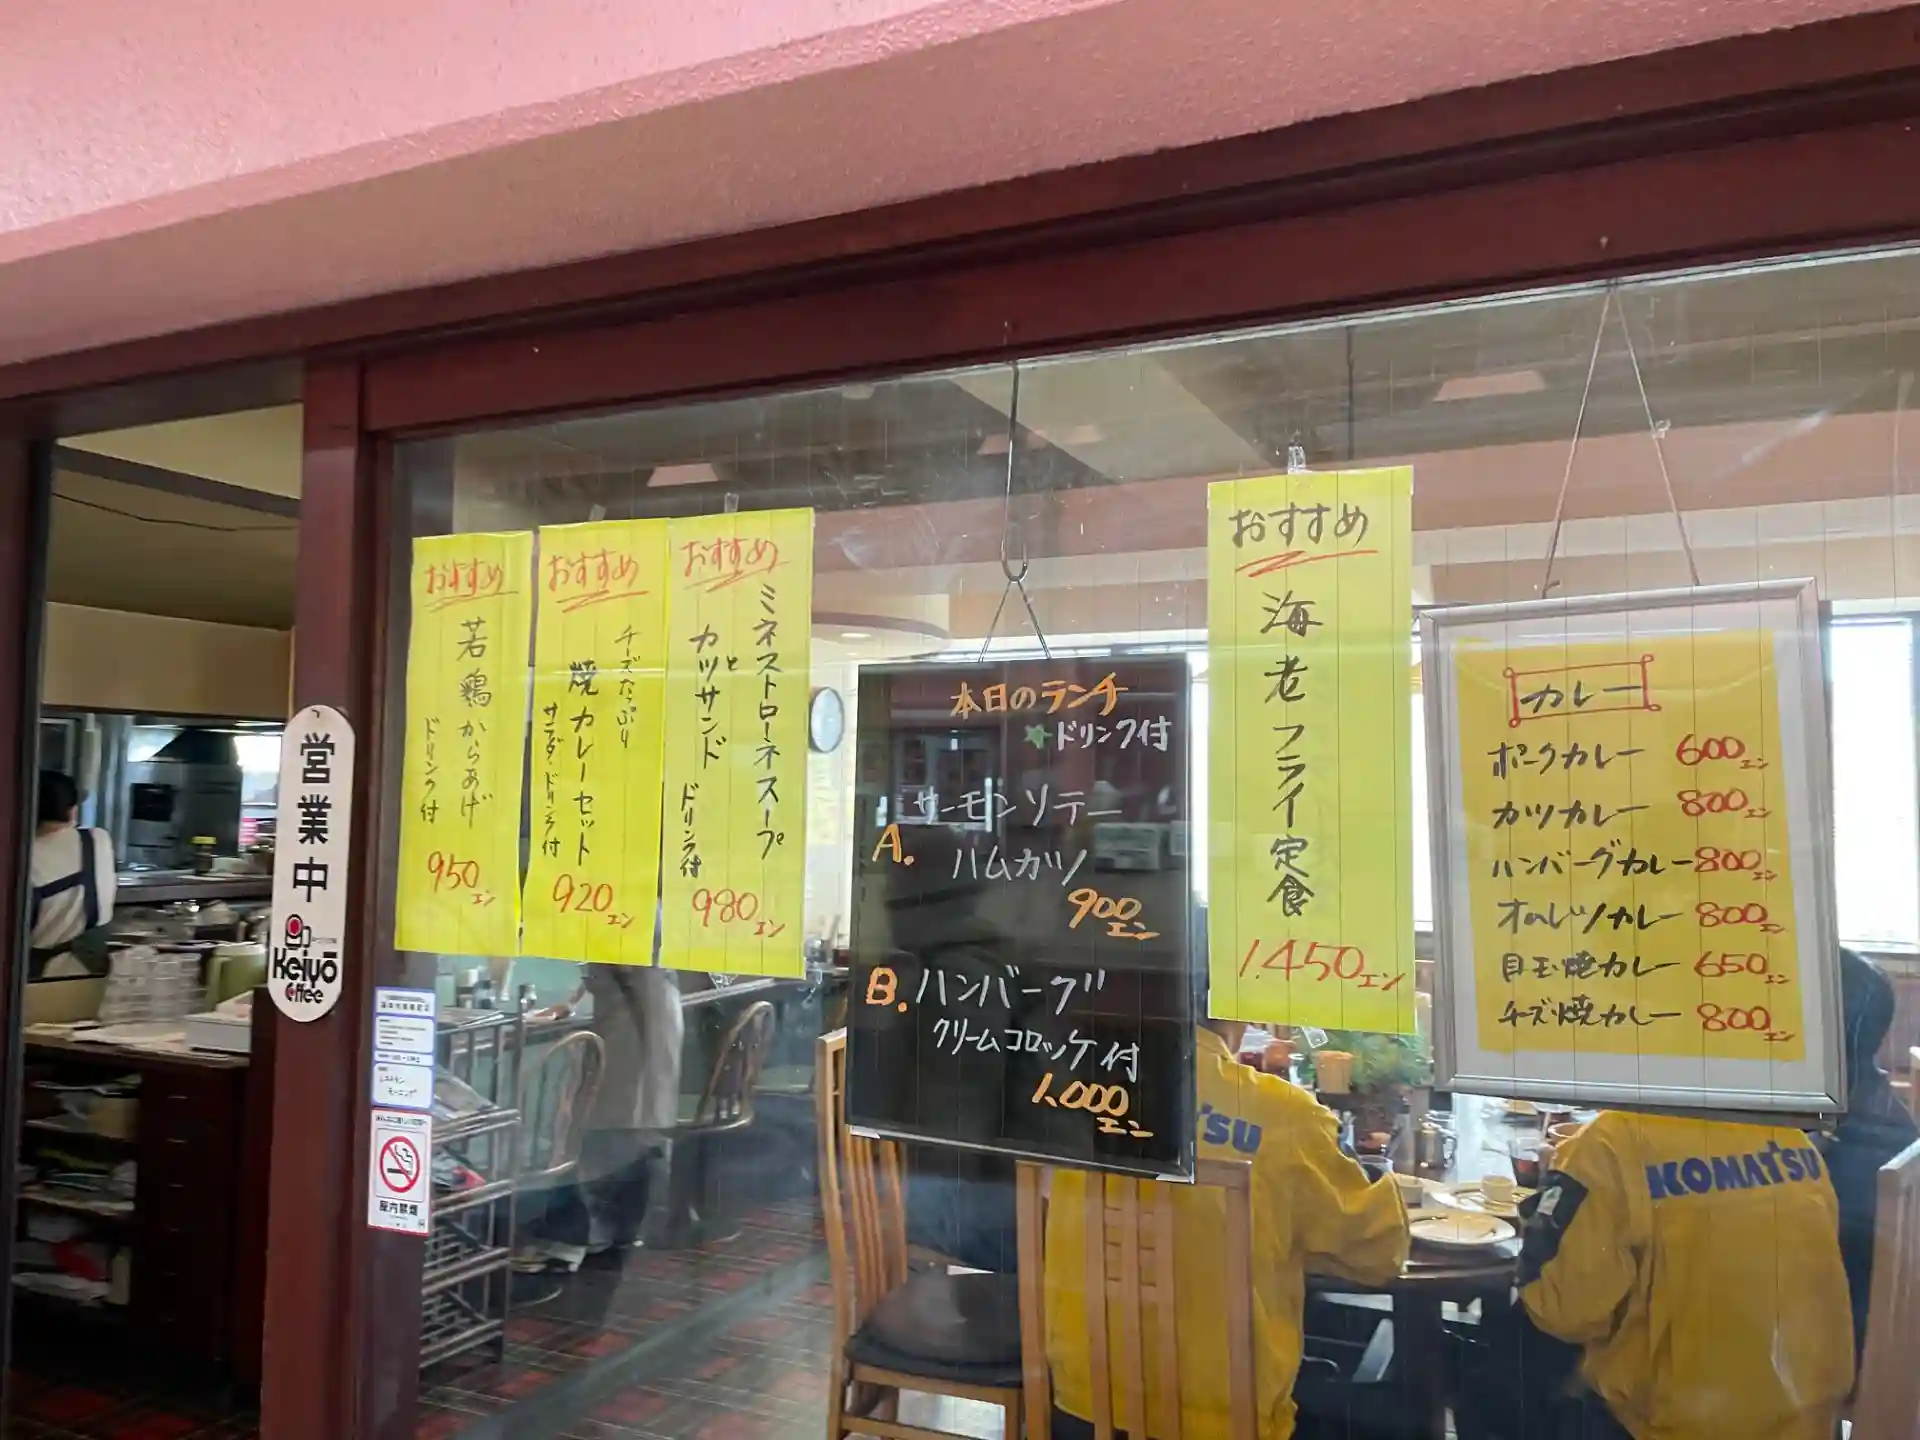 営業中
Keiyō
Coffee
おすすめ
若鶏からあげ
ドリンク付
950エン
おすすめ
チーズたっぷり
焼カレーセット
サラダ・ドリンク付
920エン
おすすめ
ミネストローネスープ
と
カツサンド
ドリンク付
980エン
本日のランチ
★ドリンク付
A. サーモンソテー
ハムカツ
900エン
B. ハンバーグ
クリームコロッケ付
1,000エン
おすすめ
海老フライ定食
1,450エン
カレー
ポークカレー 600エン
カツカレー 800エン
ハンバーグカレー 800エン
オムレツカレー 800エン
目玉焼カレー 650エン
チーズ焼カレー 800エン
屋内禁煙
KOMATSU